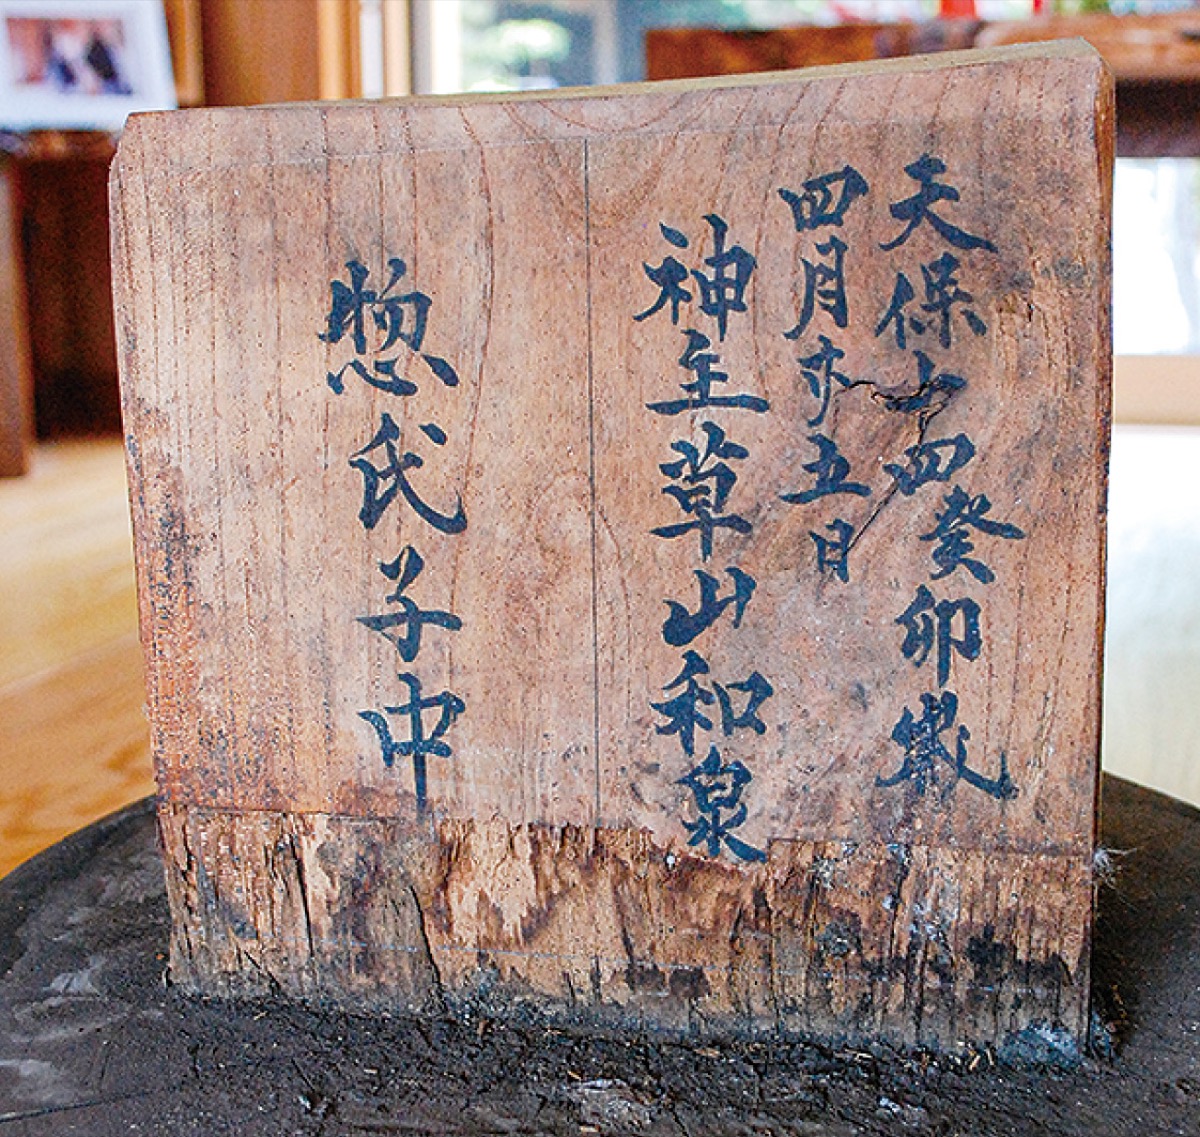 天保十四癸卯歳
四月廿五日
神主草山和泉
惣氏子中